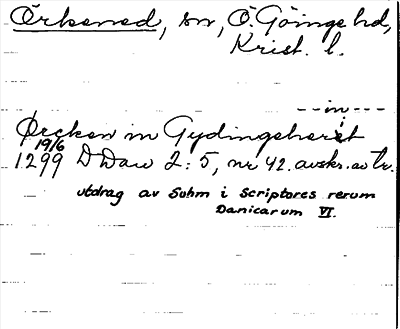 Örkened, sn, Ö. Göinge hd,
Krist. l.
--in---
Ørcken in Gydingsheret
19/6
1299 DDaw 2:5, nr 42. avskr. av tr.
utdrag av Suhm i Scriptores rerum
Danicarum VI.